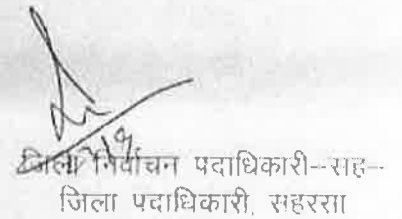 जिला निर्वाचन पदाधिकारी-सह-
जिला पदाधिकारी, सहरसा